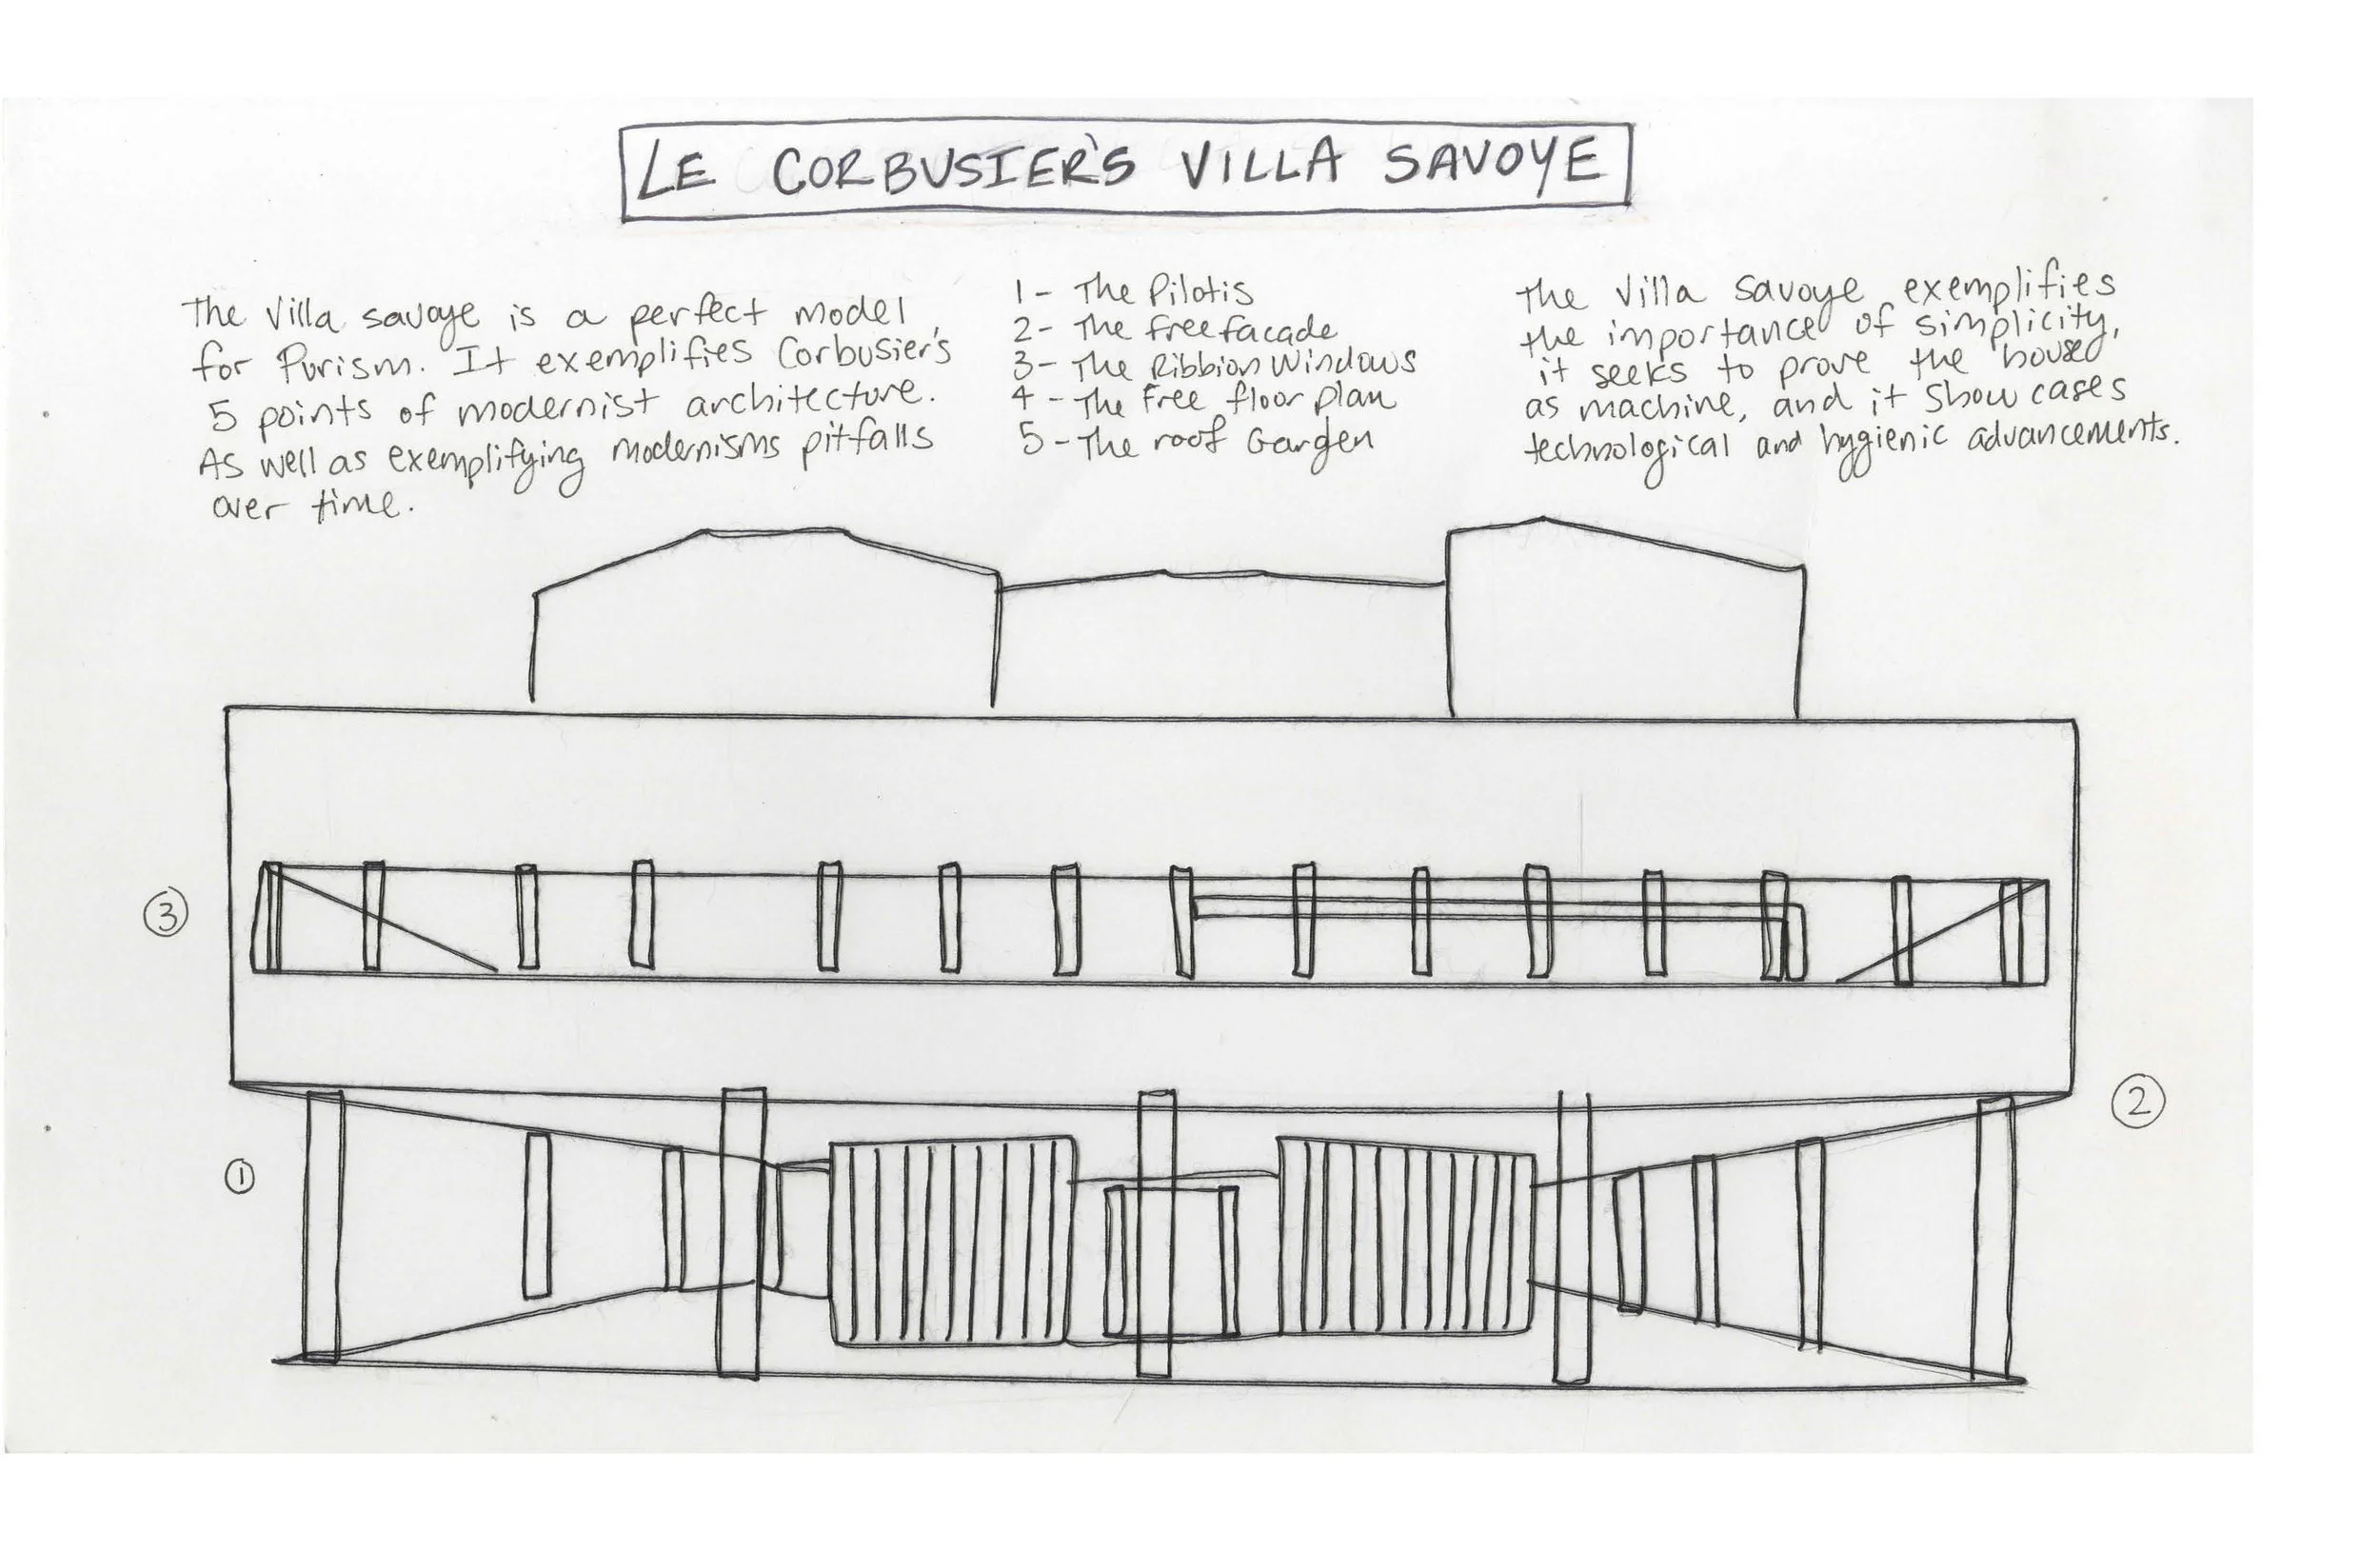 LE CORBUSIER'S VILLA SAVOYE
The Villa Savoye is a perfect model
for Purism. It exemplifies Corbusier's
5 points of modernist architecture.
As well as exemplifying modernisms pitfalls
over time.
1 - The Pilotis
2 - The free facade
3 - The Ribbion Windows
4 - The Free floor plan
5 - The roof Garden
The Villa Savoye exemplifies
the importance of simplicity,
it seeks to prove the house
as machine, and it show cases
technological and hygienic advancements.
3
2
1